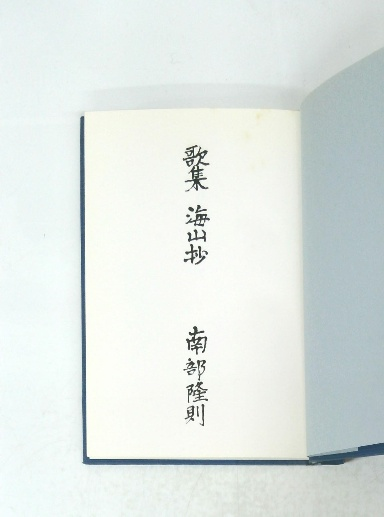 歌集 海山抄
南部隆則